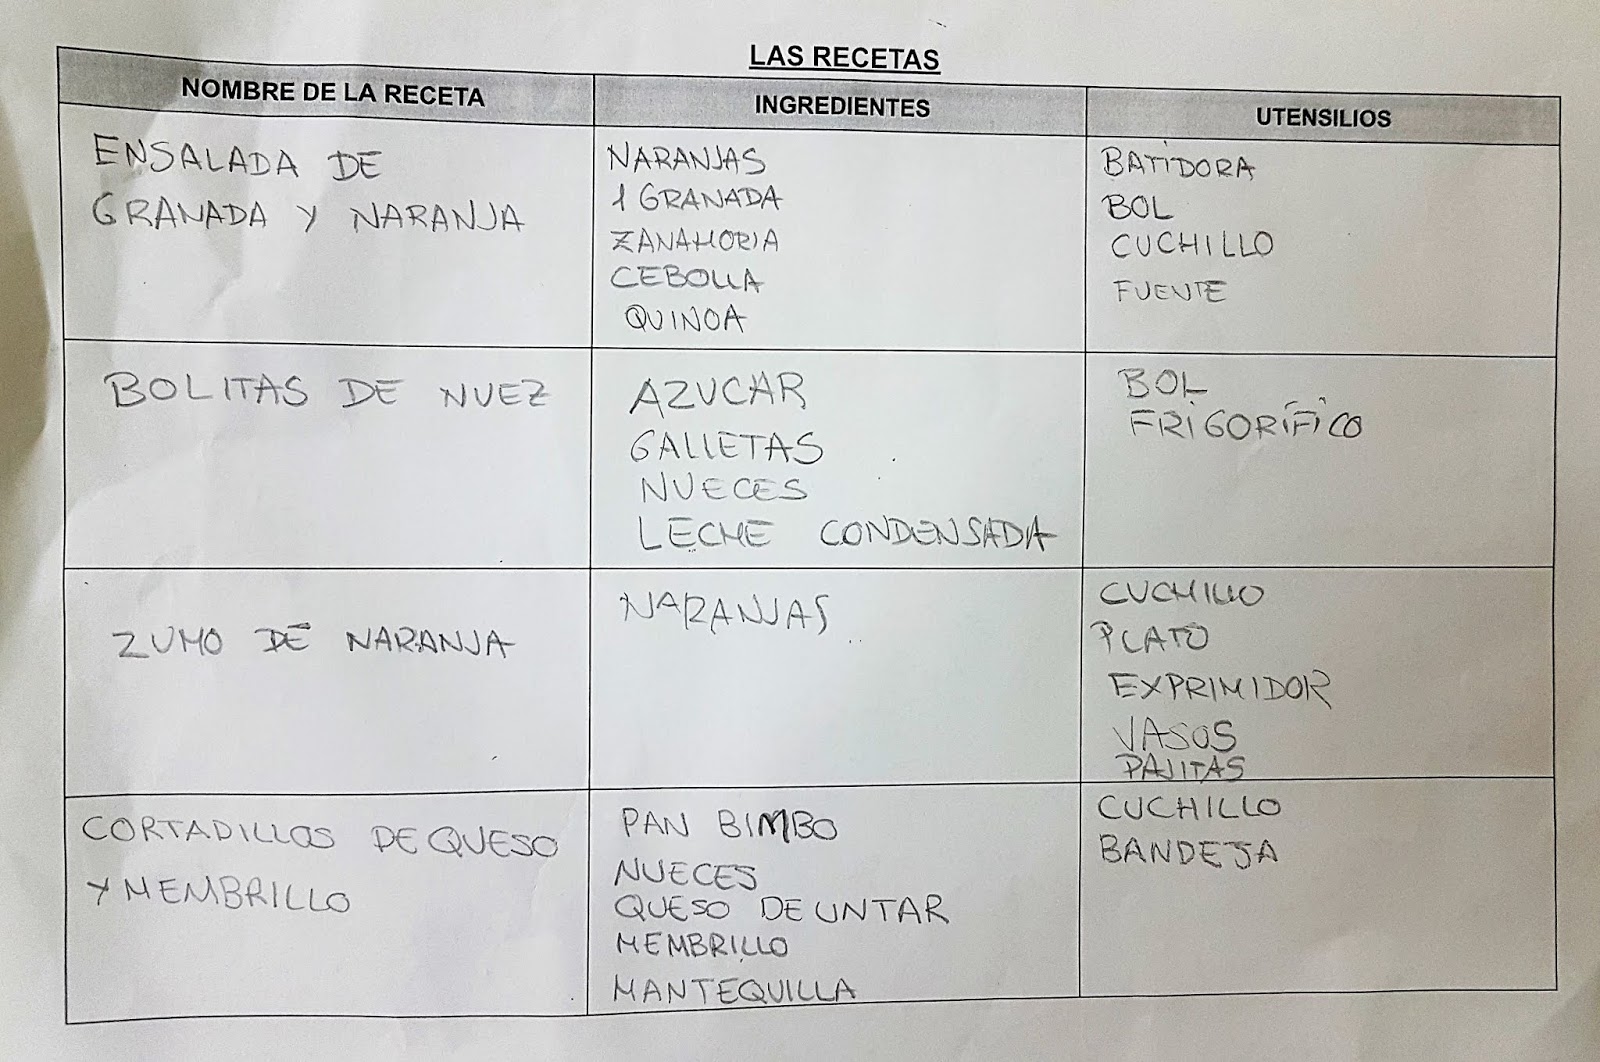 LAS RECETAS
NOMBRE DE LA RECETA
INGREDIENTES
UTENSILIOS
ENSALADA DE
GRANADA Y NARANJA
NARANJAS
1 GRANADA
ZANAHORIA
CEBOLLA
QUINOA
BATIDORA
BOL
CUCHILLO
FUENTE
BOLITAS DE NUEZ
AZUCAR
GALLETAS
NUECES
LECHE CONDENSADA
BOL
FRIGORÍFICO
ZUMO DE NARANJA
NARANJAS
CUCHILLO
PLATO
EXPRIMIDOR
VASOS
PAJITAS
CORTADILLOS DE QUESO
Y MEMBRILLO
PAN BIMBO
NUECES
QUESO DE UNTAR
MEMBRILLO
MANTEQUILLA
CUCHILLO
BANDEJA